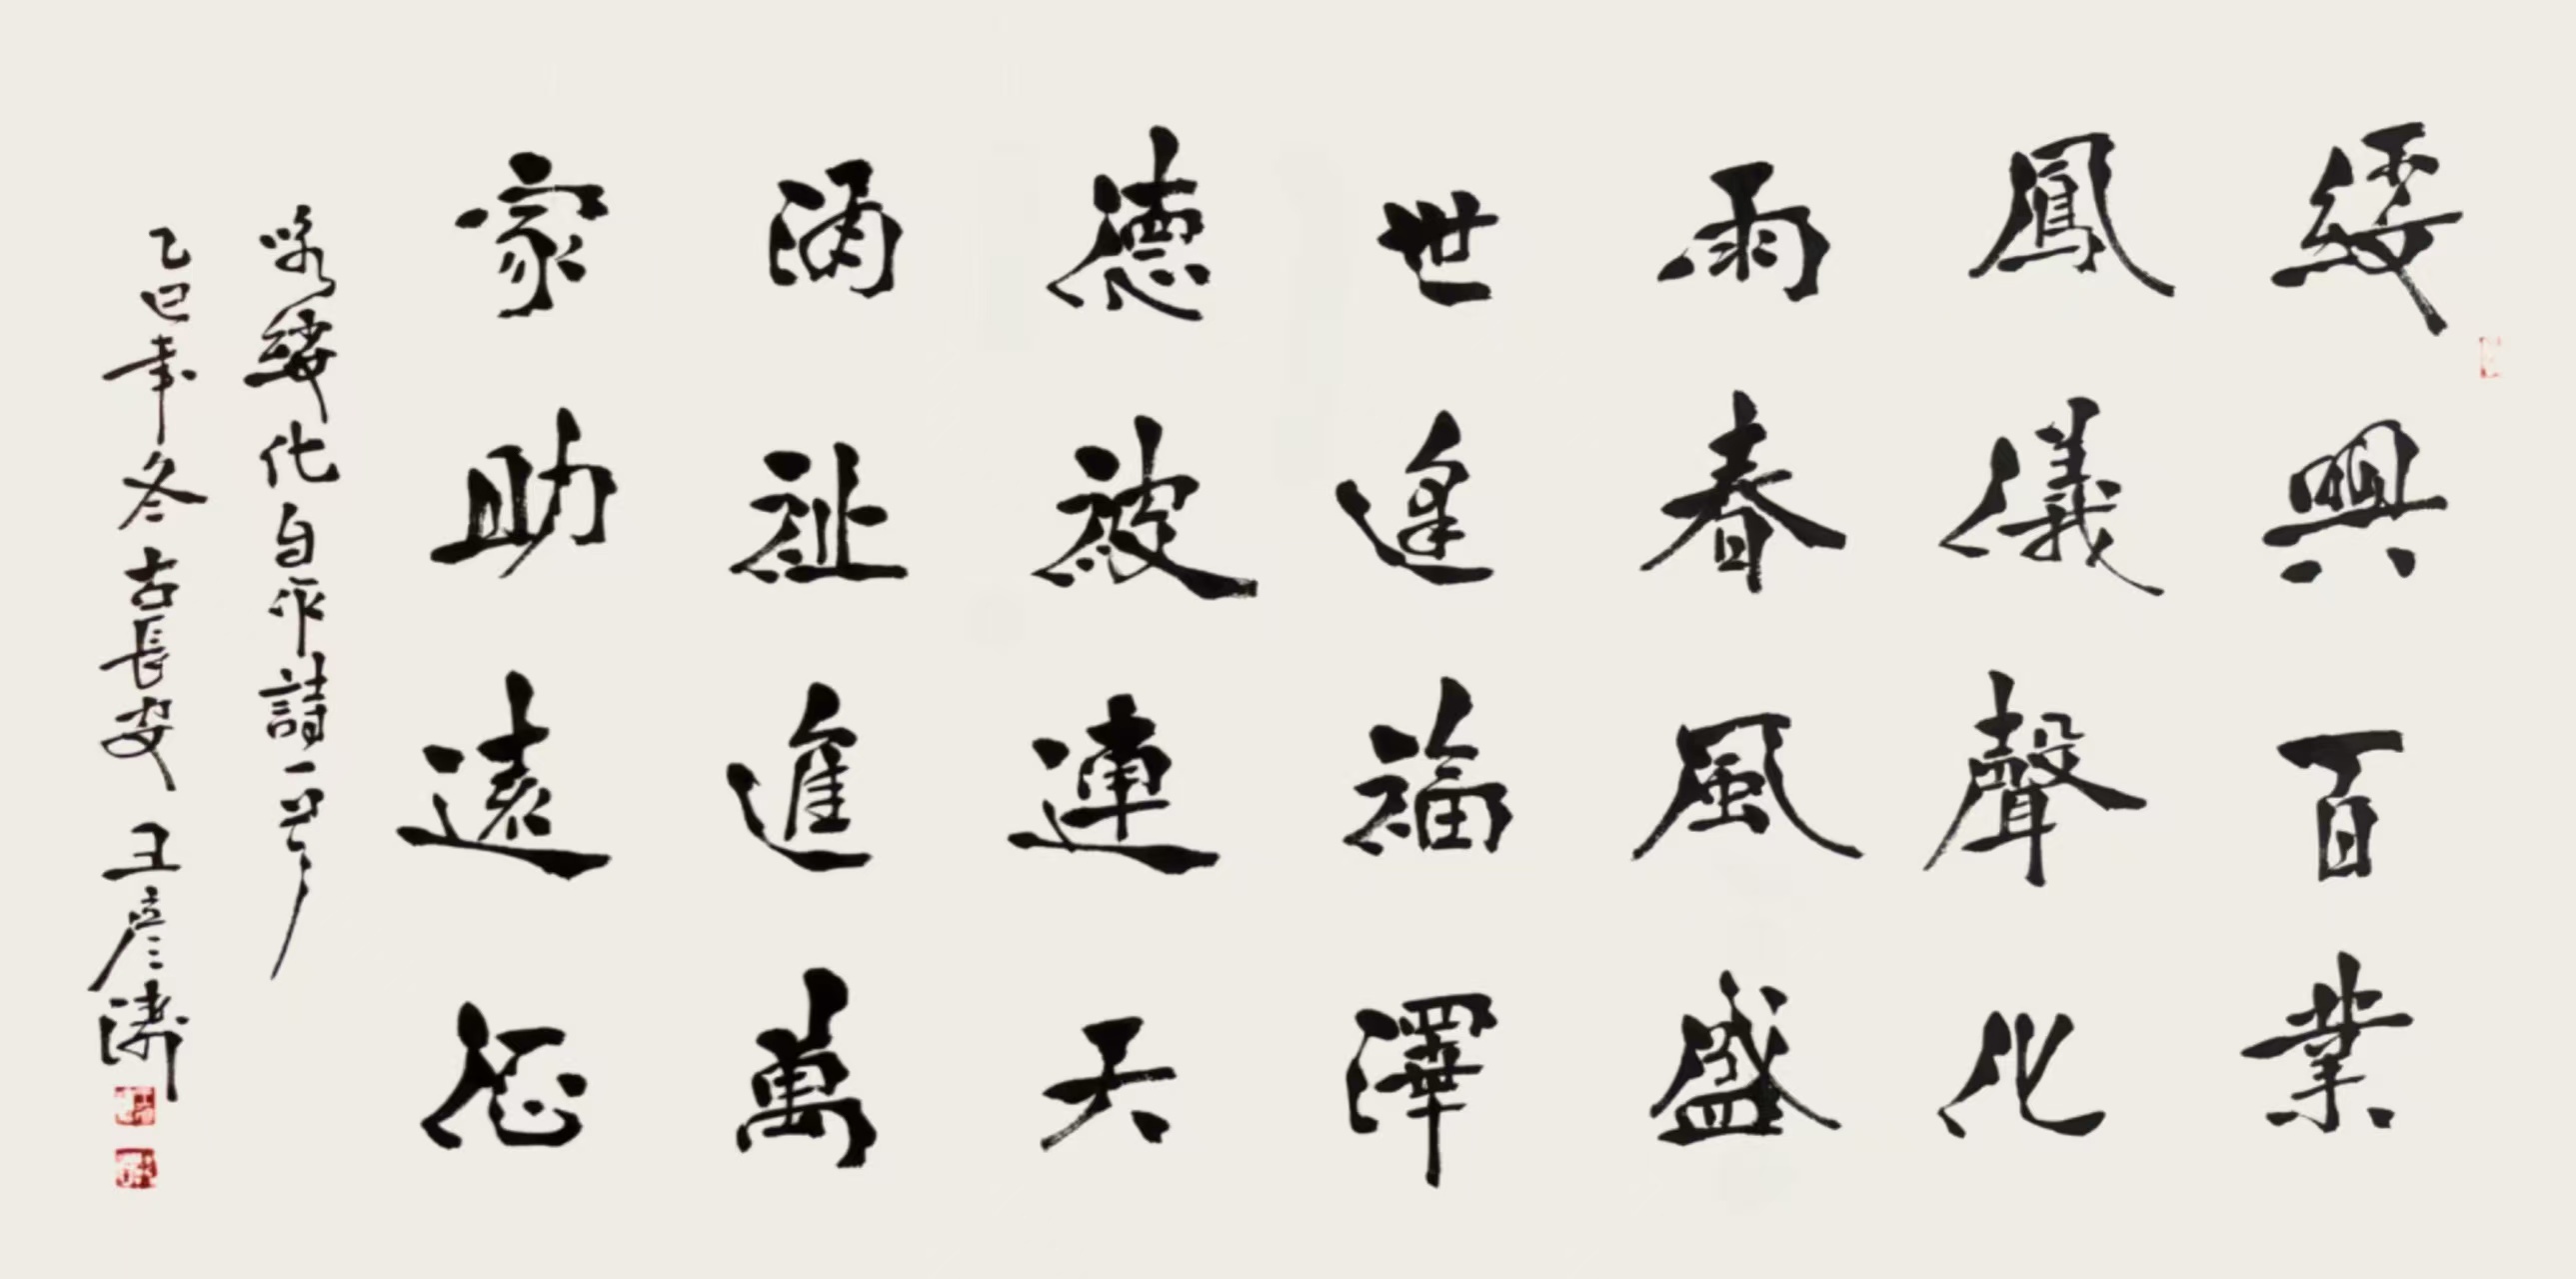 綏興百業
鳳儀聲化
雨春風盛
世逢福澤
德被連天
涌祉進萬
家助遠征
咏綏化自作詩一首
乙巳年冬古長安王彥濤